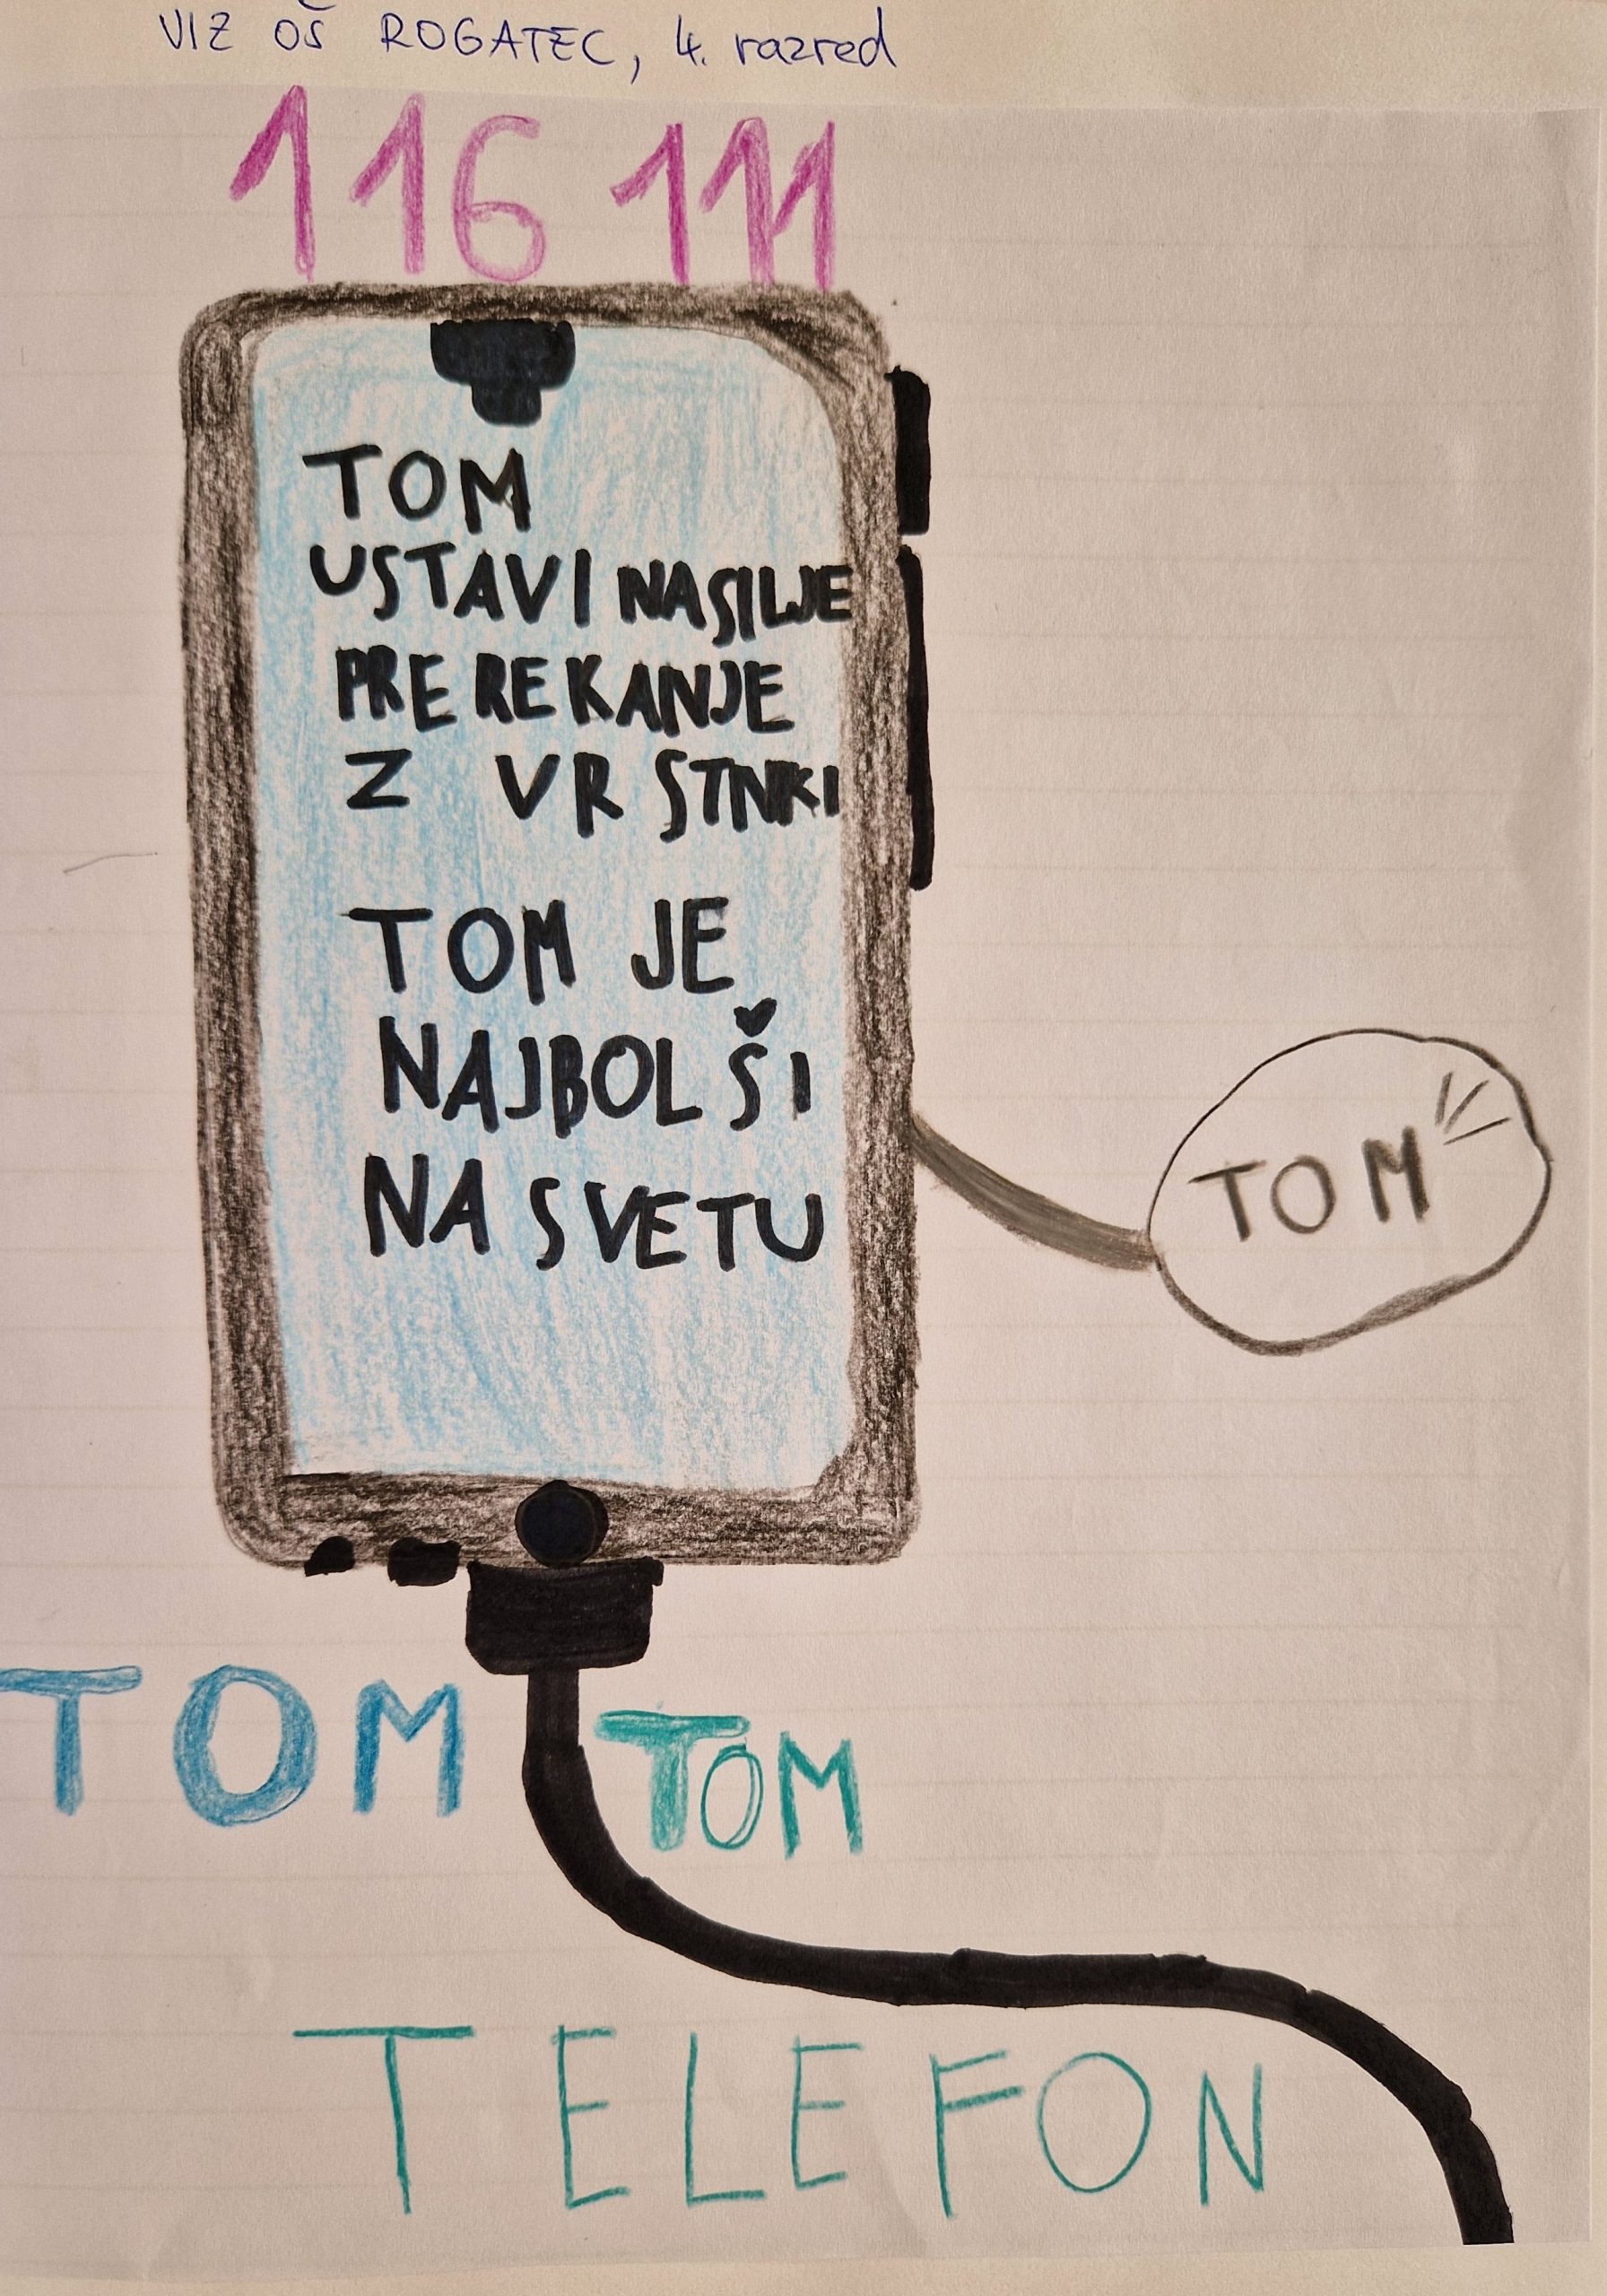 VIZ OŠ ROGATEC, 4. razred
116 111
TOM
USTAVI NASILJE
PREREKANJE
Z VRSTNIKI
TOM JE
NAJBOLŠI
NA SVETU
TOM
TOM TOM
TELEFON